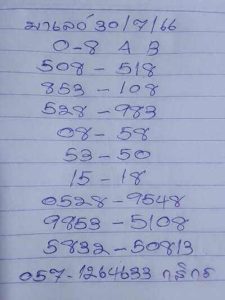 มาเลย์ 30/7/66
0-8 A B
508 - 518
853 - 108
528 - 983
08 - 58
53 - 50
15 - 18
0528 - 9548
9853 - 5108
5832 - 50813
057-1264633 กสิกร